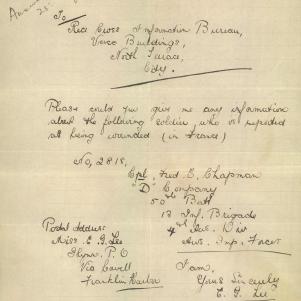 To
Red Cross Information Bureau,
Verco Buildings,
North Terrace,
City.
Please could you give me any information
about the following soldier, who is reported
as being wounded (in France)
No, 2818,
Cpl, Fred E, Chapman
"D" Company
50th Batt
13 Inf. Brigade
4th Aus. Div
Aus. Imp. Forces
Postal address
Miss E. G. Lee
P. O
Via Cowell
Franklin Harbor
I am,
Yours Sincerely
E. G. Lee